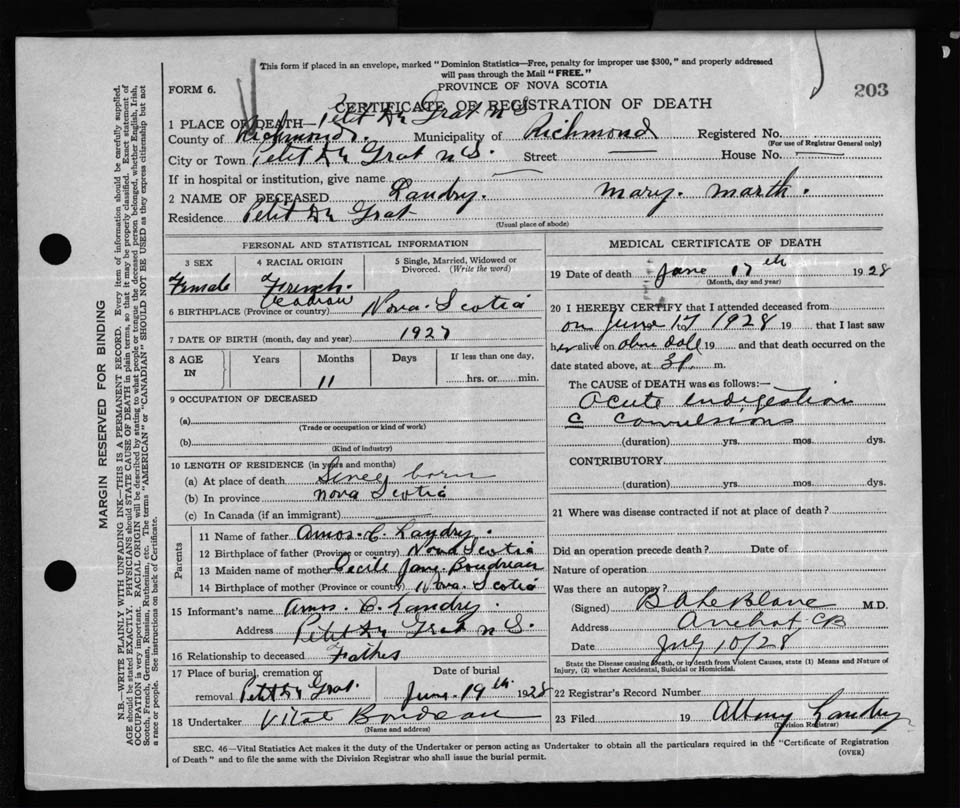 This form if placed in an envelope, marked "Dominion Statistics—Free, penalty for improper use $300," and properly addressed
will pass through the Mail "FREE."
FORM 6.
PROVINCE OF NOVA SCOTIA
203
CERTIFICATE OF REGISTRATION OF DEATH
1 PLACE OF DEATH— Petit Du Grat N S
County of Richmond. Municipality of Richmond Registered No.
(For use of Registrar General only)
City or Town Petit Du Grat N S. Street House No.
If in hospital or institution, give name
2 NAME OF DECEASED Landry. Mary. Marth.
Residence Petit Du Grat
(Usual place of abode)
PERSONAL AND STATISTICAL INFORMATION
3 SEX 4 RACIAL ORIGIN 5 Single, Married, Widowed or
Divorced. (Write the word)
Female French.
6 BIRTHPLACE (Province or country) Nova. Scotia
7 DATE OF BIRTH (month, day and year) 1927
8 AGE Years Months Days If less than one day,
IN 11 hrs. or min.
9 OCCUPATION OF DECEASED
(a)
(Trade or occupation or kind of work)
(b)
(Kind of industry)
10 LENGTH OF RESIDENCE (in years and months)
(a) At place of death Since born
(b) In province Nova Scotia
(c) In Canada (if an immigrant)
Parents
11 Name of father Amos. C. Landry.
12 Birthplace of father (Province or country) Nova Scotia
13 Maiden name of mother Cecile Jane Boudreau
14 Birthplace of mother (Province or country) Nova. Scotia
15 Informant's name Amos. C. Landry.
Address Petit Du Grat N S.
16 Relationship to deceased Father
17 Place of burial, cremation or Date of burial
removal Petit Du Grat. June. 19th. 1928
18 Undertaker Vital
(Name and address)
MEDICAL CERTIFICATE OF DEATH
19 Date of death June 17th 1928
(Month, day and year)
20 I HEREBY CERTIFY that I attended deceased from
on June 17 to 1928 19 that I last saw
her alive on 19 and that death occurred on the
date stated above, at m.
The CAUSE of DEATH was as follows:—
Acute Indigestion
c Convulsions
(duration) yrs. mos. dys.
CONTRIBUTORY
(duration) yrs. mos. dys.
21 Where was disease contracted if not at place of death?
Did an operation precede death? Date of
Nature of operation
Was there an autopsy?
(Signed) B A LeBlanc M.D.
Address Arichat CB
Date July 10/28
State the Disease causing Death, or in death from Violent Causes, state (1) Means and Nature of
Injury, (2) whether Accidental, Suicidal or Homicidal.
22 Registrar's Record Number
23 Filed 19 Landry
(Division Registrar)
SEC. 46—Vital Statistics Act makes it the duty of the Undertaker or person acting as Undertaker to obtain all the particulars required in the "Certificate of Registration
of Death" and to file the same with the Division Registrar who shall issue the burial permit.
(OVER)
MARGIN RESERVED FOR BINDING
N.B.—WRITE PLAINLY WITH UNFADING INK—THIS IS A PERMANENT RECORD. Every item of information should be carefully supplied.
AGE should be stated EXACTLY. PHYSICIANS should STATE CAUSE OF DEATH in plain terms, so that it may be properly classified. Exact statement of
OCCUPATION is very important. RACIAL ORIGIN will be described by stating to what people or tongue the deceased person belonged, whether English, Irish,
Scotch, French, German, Russian, Ruthenian, etc. The terms "AMERICAN" or "CANADIAN" SHOULD NOT BE USED as they express citizenship but not
a race or people. See instructions on back of Certificate.